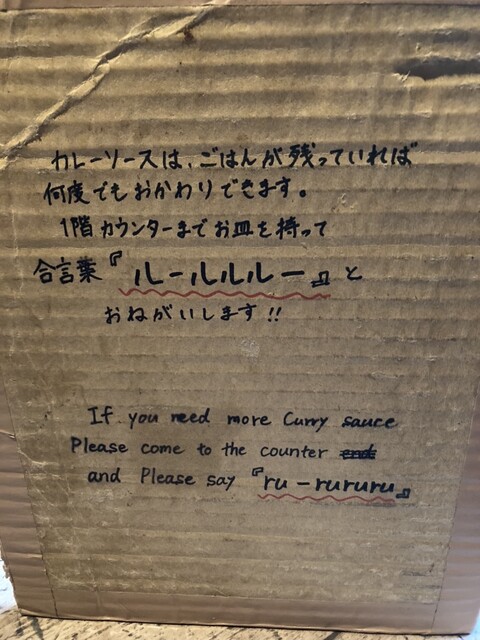 カレーソースは、ごはんが残っていれば
何度でもおかわりできます。
1階カウンターまでお皿を持って
合言葉『ルールルルー』と
おねがいします!!
If you need more Curry sauce
Please come to the counter end
and Please say『ru-rururu』